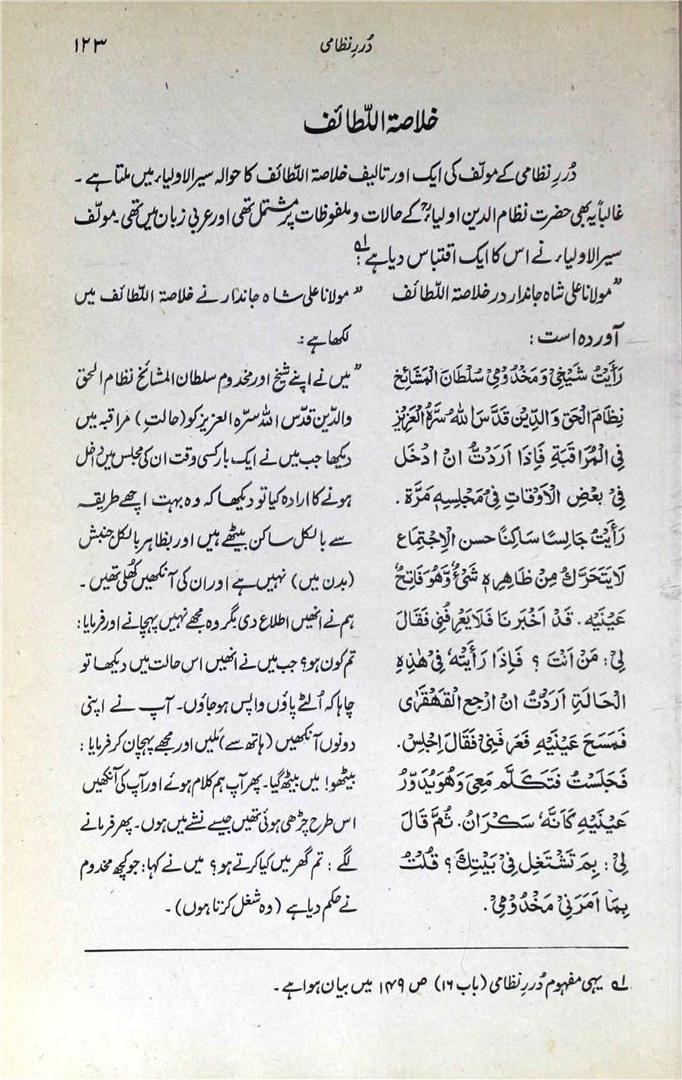 دُررِ نظامی
۱۲۳
خلاصۃ اللّطائف
دُررِ نظامی کے مولّف کی ایک اور تالیف خلاصۃ اللّطائف کا حوالہ سیر الاولیاء میں ملتا ہے ۔
غالباً یہ بھی حضرت نظام الدین اولیاءؒ کے حالات و ملفوظات پر مشتمل تھی اور عربی زبان میں تھی۔ مولّف
سیر الاولیاء نے اس کا ایک اقتباس دیا ہے : لہ
” مولانا علی شاہ جاندار در خلاصۃ اللّطائف
آوردہ است :
رَأَيْتُ شَيْخِيْ وَمَخْدُوْمِيْ سُلْطَانَ الْمَشَائِخِ
نِظَامَ الْحَقِّ وَالدِّيْنِ قَدَّسَ اللّٰهُ سِرَّهُ الْعَزِيْز
فِي الْمُرَاقَبَةِ فَاِذَا اَرَدْتُ اَنْ اَدْخُلَ
فِيْ بَعْضِ الْاَوْقَاتِ فِيْ مَجْلِسِهٖ مَرَّةً ۔
رَأَيْتُ جَالِسًا سَاكِنًا حسن الْاِجْتِمَاعِ
لَا يَتَحَرَّكُ مِنْ ظَاهِرِهٖ شَيْءٌ وَهُوَ فَاتِحٌ
عَيْنَيْهِ ۔ قَدْ اَخْبَرنَا فَلَا يَعْرِفُنِيْ فَقَالَ
لِيْ : مَنْ اَنْتَ ؟ فَاِذَا رَأَيْتُهٗ فِيْ هٰذِهِ
الْحَالَةِ اَرَدْتُ اَنْ اَرْجِعَ الْقَهْقَرٰى
فَمَسَحَ عَيْنَيْهِ فَعَرَفَنِيْ فَقَالَ اِجْلِسْ ۔
فَجَلَسْتُ فَتَكَلَّمَ مَعِيْ وَهُوَ يُدَوِّرُ
عَيْنَيْهِ كَاَنَّهٗ سَكْرَانُ ۔ ثُمَّ قَالَ
لِيْ : بِمَ تَشْتَغِلُ فِيْ بَيْتِكَ ؟ قُلْتُ
بِمَا اَمَرَنِيْ مَخْدُوْمِيْ ۔
” مولانا علی شاہ جاندار نے خلاصۃ اللّطائف میں
لکھا ہے :۔
” میں نے اپنے شیخ اور مخدوم سلطان المشائخ نظام الحق
والدّین قدّس اللہ سرّہ العزیز کو (حالتِ) مراقبہ میں
دیکھا جب میں نے ایک بار کسی وقت ان کی مجلس میں داخل
ہونے کا ارادہ کیا تو دیکھا کہ وہ بہت اچھے طریقہ
سے بالکل ساکن بیٹھے ہیں اور بظاہر بالکل جنبش
(بدن میں) نہیں ہے اور ان کی آنکھیں کھُلی تھیں ۔
ہم نے انھیں اطلاع دی مگر وہ مجھے نہیں پہچانے اور فرمایا :
تم کون ہو ؟ جب میں نے انھیں اس حالت میں دیکھا تو
چاہا کہ اُلٹے پاؤں واپس ہو جاؤں ۔ آپ نے اپنی
دونوں آنکھیں (ہاتھ سے) مَلیں اور مجھے پہچان کر فرمایا :
بیٹھو ! میں بیٹھ گیا ۔ پھر آپ ہم کلام ہوئے اور آپ کی آنکھیں
اس طرح چڑھی ہوئی تھیں جیسے نشے میں ہوں ۔ پھر فرمانے
لگے : تم گھر میں کیا کرتے ہو ؟ میں نے کہا : جو کچھ مخدوم
نے حکم دیا ہے (وہ شغل کرتا ہوں) ۔
لہ یہی مفہوم دُررِ نظامی (باب ۱۶) ص ۱۴۹ میں بیان ہوا ہے ۔